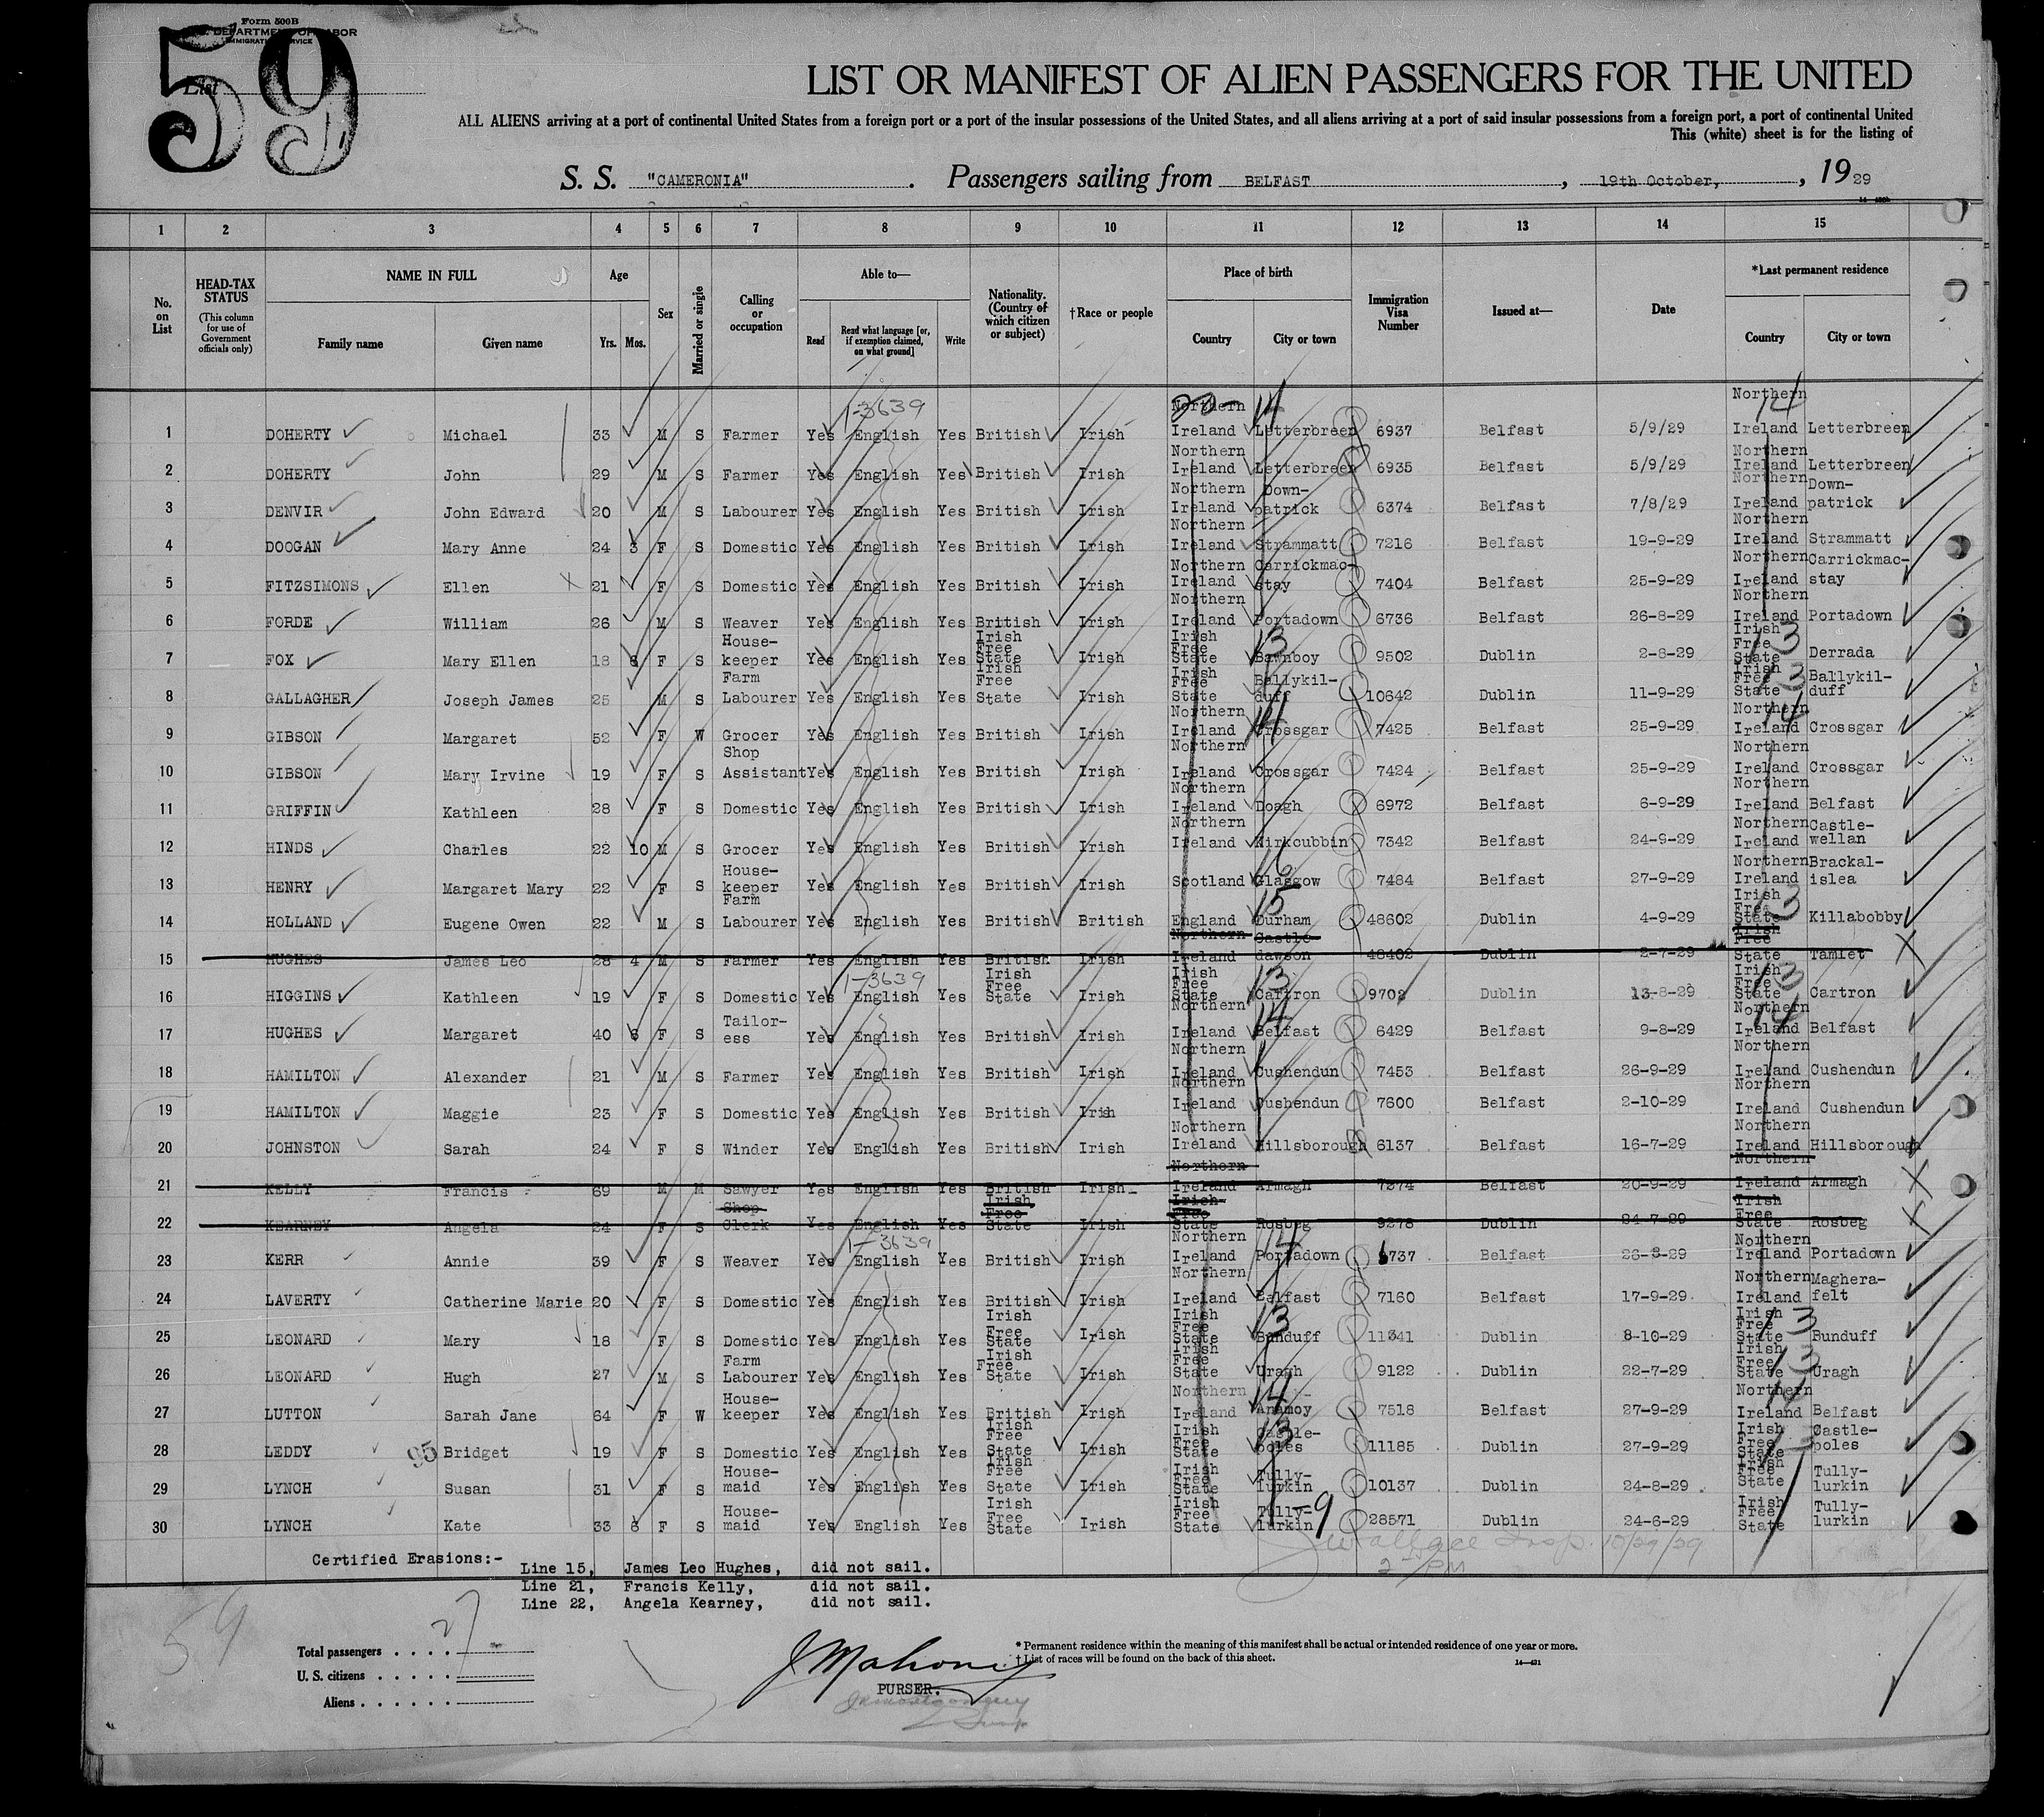 Form 500B
U. S. DEPARTMENT OF LABOR
IMMIGRATION SERVICE
List
59
LIST OR MANIFEST OF ALIEN PASSENGERS FOR THE UNITED
ALL ALIENS arriving at a port of continental United States from a foreign port or a port of the insular possessions of the United States, and all aliens arriving at a port of said insular possessions from a foreign port, a port of continental United
This (white) sheet is for the listing of
S. S. "CAMERONIA". Passengers sailing from BELFAST, 19th October, 1929
1 2 3 4 5 6 7 8 9 10 11 12 13 14 15
No. on List
HEAD-TAX STATUS (This column for use of Government officials only)
NAME IN FULL Family name Given name
Age Yrs. Mos.
Sex
Married or single
Calling or occupation
Able to— Read Read what language [or, if exemption claimed, on what ground] Write
Nationality. (Country of which citizen or subject)
†Race or people
Place of birth Country City or town
Immigration Visa Number
Issued at—
Date
*Last permanent residence Country City or town
1-3639
1 DOHERTY Michael 33 M S Farmer Yes English Yes British Irish Northern Ireland Letterbreen 6937 Belfast 5/9/29 Northern Ireland Letterbreen
2 DOHERTY John 29 M S Farmer Yes English Yes British Irish Northern Ireland Letterbreen 6935 Belfast 5/9/29 Northern Ireland Letterbreen
3 DENVIR John Edward 20 M S Labourer Yes English Yes British Irish Northern Ireland Down-patrick 6374 Belfast 7/8/29 Northern Ireland Down-patrick
4 DOOGAN Mary Anne 24 3 F S Domestic Yes English Yes British Irish Northern Ireland Strammatt 7216 Belfast 19-9-29 Northern Ireland Strammatt
5 FITZSIMONS Ellen 21 F S Domestic Yes English Yes British Irish Northern Ireland Carrickmac-stay 7404 Belfast 25-9-29 Northern Ireland Carrickmac-stay
6 FORDE William 26 M S Weaver Yes English Yes British Irish Northern Ireland Portadown 6736 Belfast 26-8-29 Northern Ireland Portadown
7 FOX Mary Ellen 18 F S House-keeper Yes English Yes Irish Free State Irish Irish Free State Bawnboy 9502 Dublin 2-8-29 Irish Free State Derrada
8 GALLAGHER Joseph James 25 M S Farm Labourer Yes English Yes Irish Free State Irish Irish Free State Ballykil-duff 10642 Dublin 11-9-29 Irish Free State Ballykil-duff
9 GIBSON Margaret 52 F W Grocer Yes English Yes British Irish Northern Ireland Crossgar 7425 Belfast 25-9-29 Northern Ireland Crossgar
10 GIBSON Mary Irvine 19 F S Shop Assistant Yes English Yes British Irish Northern Ireland Crossgar 7424 Belfast 25-9-29 Northern Ireland Crossgar
11 GRIFFIN Kathleen 28 F S Domestic Yes English Yes British Irish Northern Ireland Doagh 6972 Belfast 6-9-29 Northern Ireland Belfast
12 HINDS Charles 22 10 M S Grocer Yes English Yes British Irish Northern Ireland Kirkcubbin 7342 Belfast 24-9-29 Northern Ireland Castle-wellan
13 HENRY Margaret Mary 22 F S House-keeper Yes English Yes British Irish Scotland Glasgow 7484 Belfast 27-9-29 Northern Ireland Brackal-islea
14 HOLLAND Eugene Owen 22 M S Farm Labourer Yes English Yes British British England Durham 48602 Dublin 4-9-29 Irish Free State Killabobby
15 HUGHES James Leo 28 4 M S Farmer Yes English Yes British Irish Northern Ireland Castle dawson 48402 Dublin 2-7-29 Irish Free State Tamlet
1-3639
16 HIGGINS Kathleen 19 F S Domestic Yes English Yes Irish Free State Irish Irish Free State Cartron 9708 Dublin 13-8-29 Irish Free State Cartron
17 HUGHES Margaret 40 6 F S Tailor-ess Yes English Yes British Irish Northern Ireland Belfast 6429 Belfast 9-8-29 Northern Ireland Belfast
18 HAMILTON Alexander 21 M S Farmer Yes English Yes British Irish Northern Ireland Cushendun 7453 Belfast 26-9-29 Northern Ireland Cushendun
19 HAMILTON Maggie 23 F S Domestic Yes English Yes British Irish Northern Ireland Cushendun 7600 Belfast 2-10-29 Northern Ireland Cushendun
20 JOHNSTON Sarah 24 F S Winder Yes English Yes British Irish Northern Ireland Hillsborough 6137 Belfast 16-7-29 Northern Ireland Hillsborough
21 KELLY Francis 69 M M Sawyer Yes English Yes British Irish Northern Ireland Armagh 7374 Belfast 20-9-29 Northern Ireland Armagh
22 KEARNEY Angela 24 F S Shop Clerk Yes English Yes Irish Free State Irish Irish Free State Rosbeg 9278 Dublin 24-7-29 Irish Free State Rosbeg
1-3639
23 KERR Annie 39 F S Weaver Yes English Yes British Irish Northern Ireland Portadown 6737 Belfast 26-8-29 Northern Ireland Portadown
24 LAVERTY Catherine Marie 20 F S Domestic Yes English Yes British Irish Northern Ireland Belfast 7160 Belfast 17-9-29 Northern Ireland Maghera-felt
25 LEONARD Mary 18 F S Domestic Yes English Yes Irish Free State Irish Irish Free State Bunduff 11341 Dublin 8-10-29 Irish Free State Bunduff
26 LEONARD Hugh 27 M S Farm Labourer Yes English Yes Irish Free State Irish Irish Free State Uragh 9122 Dublin 22-7-29 Irish Free State Uragh
27 LUTTON Sarah Jane 64 F W House-keeper Yes English Yes British Irish Northern Ireland Annamoy 7518 Belfast 27-9-29 Northern Ireland Belfast
28 LEDDY 95 Bridget 19 F S Domestic Yes English Yes Irish Free State Irish Irish Free State Castle-poles 11185 Dublin 27-9-29 Irish Free State Castle-poles
29 LYNCH Susan 31 F S House-maid Yes English Yes Irish Free State Irish Irish Free State Tully-lurkin 10137 Dublin 24-8-29 Irish Free State Tully-lurkin
30 LYNCH Kate 33 6 F S House-maid Yes English Yes Irish Free State Irish Irish Free State Tully-lurkin 28571 Dublin 24-6-29 Irish Free State Tully-lurkin
Wallace Insp. 10/29/29
2 PM
Certified Erasions:-
Line 15, James Leo Hughes, did not sail.
Line 21, Francis Kelly, did not sail.
Line 22, Angela Kearney, did not sail.
59
Total passengers . . . . 27
U. S. citizens . . . . .
Aliens . . . . . .
J Mahoney
PURSER.
* Permanent residence within the meaning of this manifest shall be actual or intended residence of one year or more.
† List of races will be found on the back of this sheet.
14—421